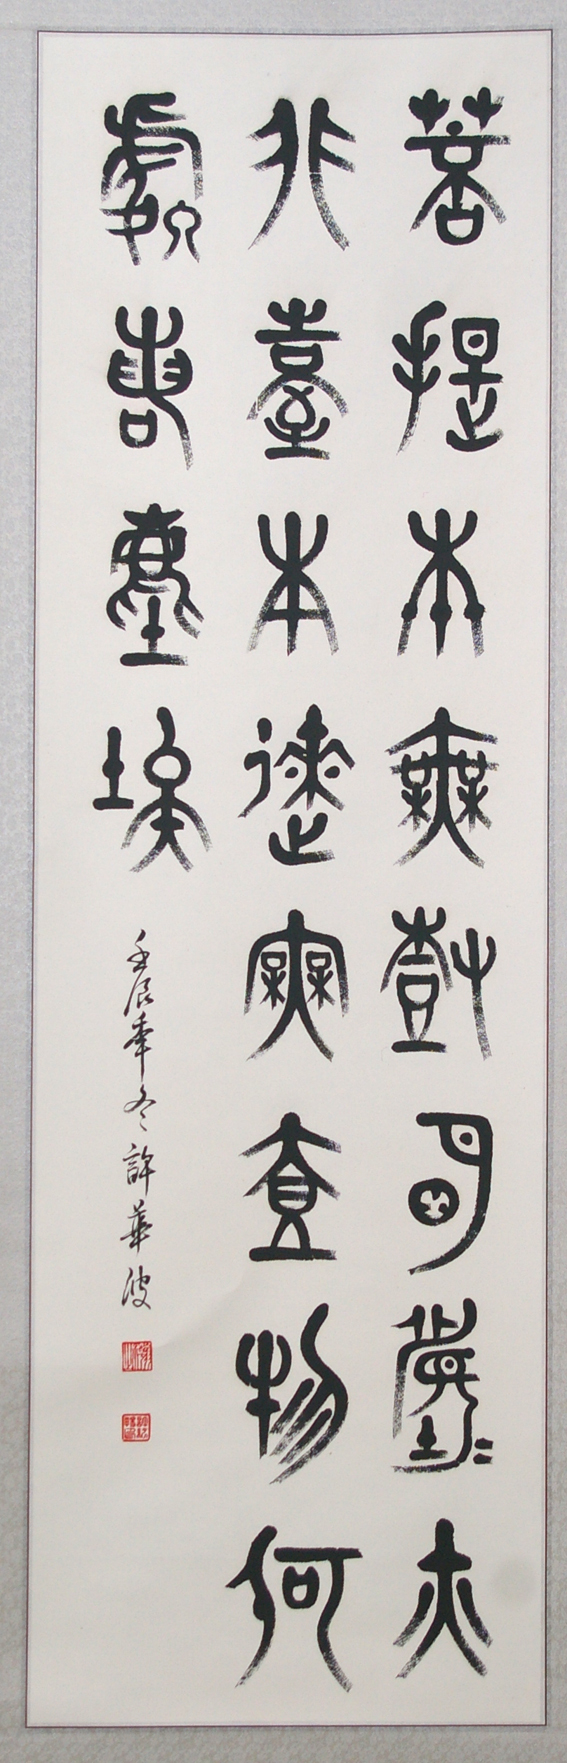 菩提本無樹明鏡亦
非臺本來無壹物何
處惹塵埃
壬辰年冬許華波